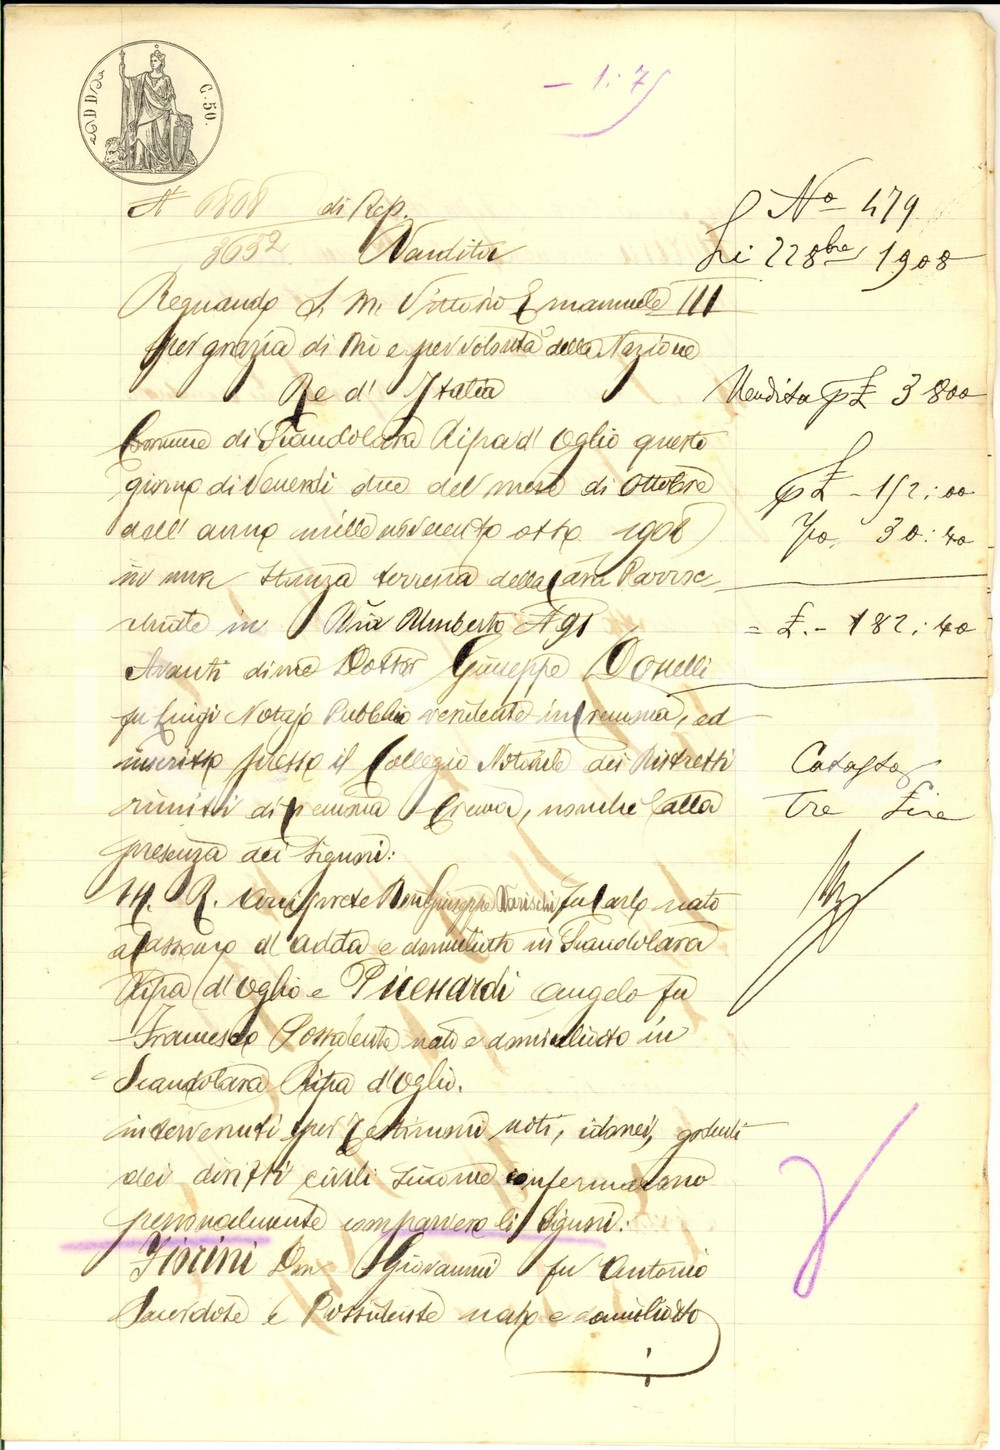 C. 50.
- 1:75
N° 6808 di Rep.
3652 Vendita
Regnando S. M. Vittorio Emanuele III
per grazia di Dio e per volontà della Nazione
Re d' Italia
Comune di Scandolara Ripa d' Oglio questo
giorno di Venerdì due del mese di Ottobre
dell' anno mille novecento otto 1908
in una stanza terrena della Casa Parroc
chiale in Via Umberto N° 91
Avanti di me Dottor Giuseppe Donelli
fu Luigi Notajo Pubblico residente in Cremona, ed
inscritto presso il Collegio Notarile dei Distretti
riuniti di Cremona Crema, nonché alla
presenza dei Signori:
M. R. Arciprete Don Giuseppe Varischi fu Carlo nato
a Cassano d' Adda e domiciliato in Scandolara
Ripa d' Oglio e Picenardi Angelo fu
Francesco Possidente nato e domiciliato in
Scandolara Ripa d' Oglio.
intervenuti per Testimoni noti, idonei, godenti
dei diritti civili siccome confermarono
personalmente comparvero li Signori:
Fiorini Don Giovanni fu Antonio
Sacerdote e Possidente nato e domiciliato
N° 479
Li 22 8bre 1908
Vendita p£ 3800
p£ - 152:00
30:40
= £. - 182:40
Catasto
Tre Lire